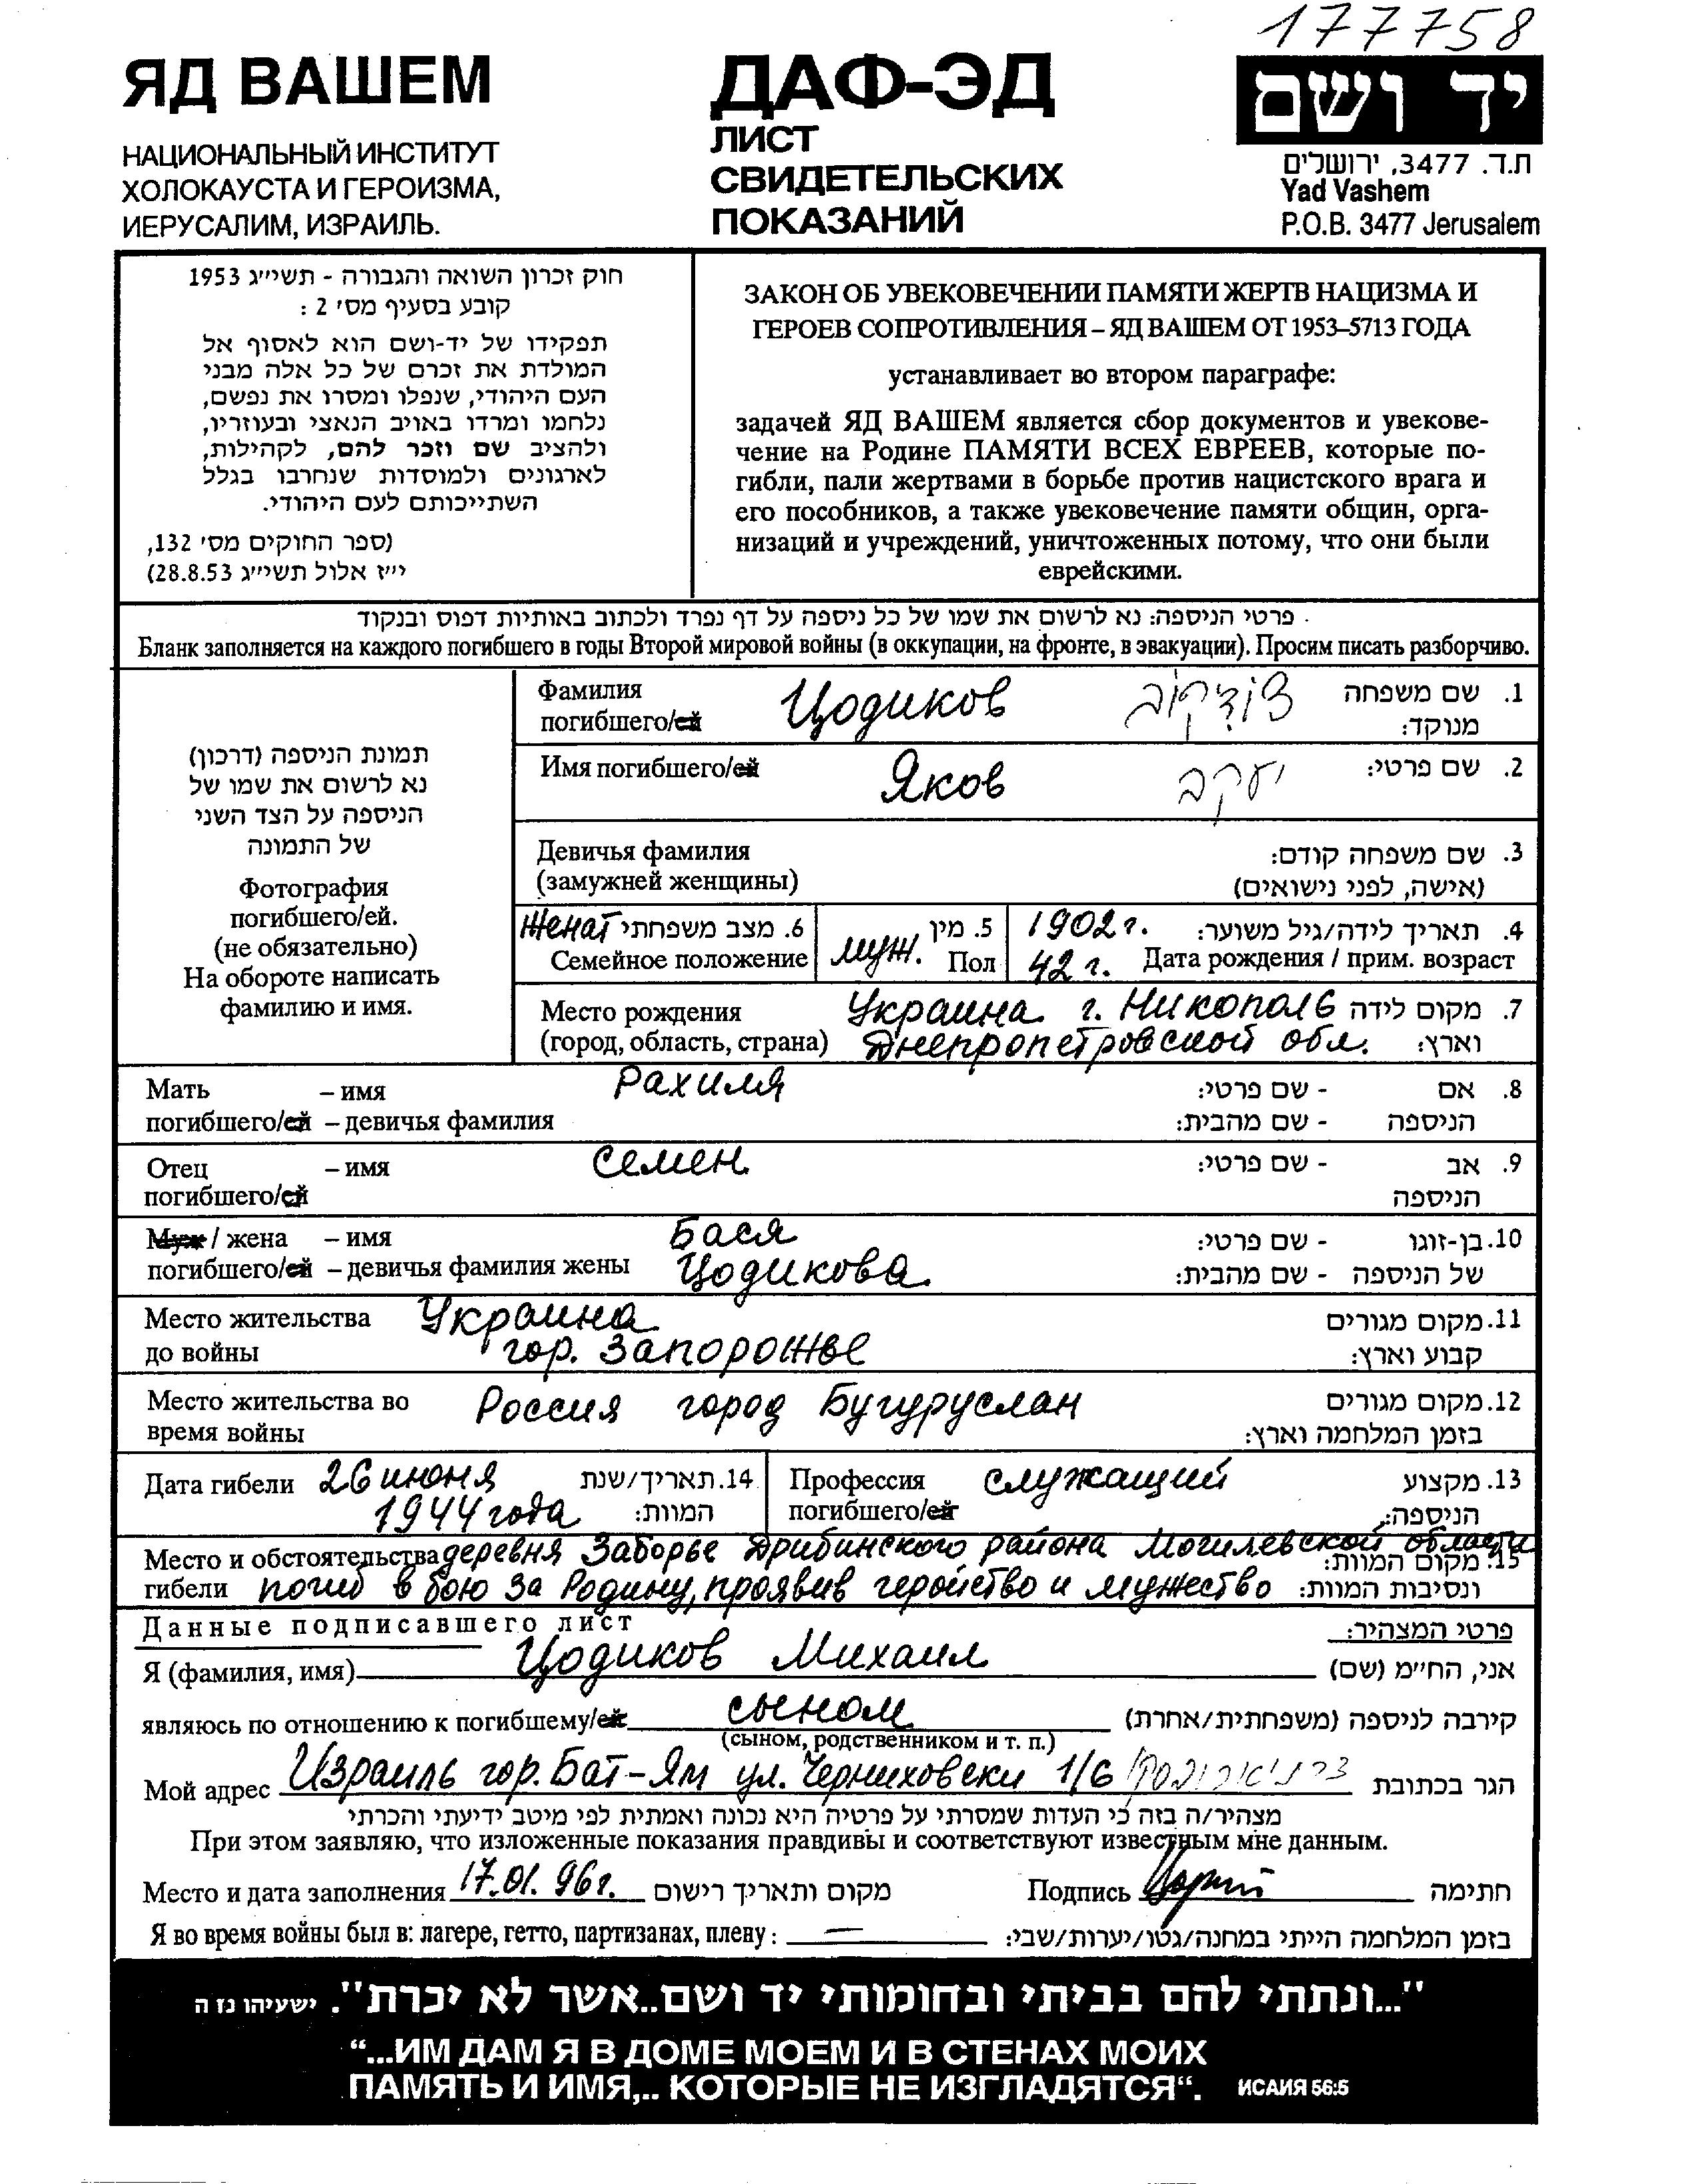 177758
ЯД ВАШЕМ
НАЦИОНАЛЬНЫЙ ИНСТИТУТ
ХОЛОКАУСТА И ГЕРОИЗМА,
ИЕРУСАЛИМ, ИЗРАИЛЬ.
ДАФ-ЭД
ЛИСТ
СВИДЕТЕЛЬСКИХ
ПОКАЗАНИЙ
יד ושם
ת.ד. 3477, ירושלים
Yad Vashem
P.O.B. 3477 Jerusalem
חוק זכרון השואה והגבורה - תשי״ג 1953
קובע בסעיף מס׳ 2 :
תפקידו של יד-ושם הוא לאסוף אל
המולדת את זכרם של כל אלה מבני
העם היהודי, שנפלו ומסרו את נפשם,
נלחמו ומרדו באויב הנאצי ובעוזריו,
ולהציב שם וזכר להם, לקהילות,
לארגונים ולמוסדות שנחרבו בגלל
השתייכותם לעם היהודי.
(ספר החוקים מס׳ 132,
י״ז אלול תשי״ג 28.8.53)
ЗАКОН ОБ УВЕКОВЕЧЕНИИ ПАМЯТИ ЖЕРТВ НАЦИЗМА И
ГЕРОЕВ СОПРОТИВЛЕНИЯ – ЯД ВАШЕМ ОТ 1953–5713 ГОДА
устанавливает во втором параграфе:
задачей ЯД ВАШЕМ является сбор документов и увекове-
чение на Родине ПАМЯТИ ВСЕХ ЕВРЕЕВ, которые по-
гибли, пали жертвами в борьбе против нацистского врага и
его пособников, а также увековечение памяти общин, орга-
низаций и учреждений, уничтоженных потому, что они были
еврейскими.
פרטי הניספה: נא לרשום את שמו של כל ניספה על דף נפרד ולכתוב באותיות דפוס ובנקוד
Бланк заполняется на каждого погибшего в годы Второй мировой войны (в оккупации, на фронте, в эвакуации). Просим писать разборчиво.
תמונת הניספה (דרכון)
נא לרשום את שמו של
הניספה על הצד השני
של התמונה
Фотография
погибшего/ей.
(не обязательно)
На обороте написать
фамилию и имя.
Фамилия Цодиков צודיקוב 1. שם משפחה
погибшего/ей מנוקד:
Имя погибшего/ей Яков יעקב 2. שם פרטי:
Девичья фамилия 3. שם משפחה קודם:
(замужней женщины) (אישה, לפני נישואים)
Женат 6. מצב משפחתי муж. 5. מין 1902 г. 4. תאריך לידה/גיל משוער:
Семейное положение Пол 42 г. Дата рождения / прим. возраст
Место рождения Украина г. Никополь 7. מקום לידה
(город, область, страна) Днепропетровской обл. וארץ:
Мать – имя Рахиля - שם פרטי: 8. אם
погибшего/ей – девичья фамилия - שם מהבית: הניספה
Отец – имя Семен - שם פרטי: 9. אב
погибшего/ей הניספה
Муж / жена – имя Бася - שם פרטי: 10. בן-זוגו
погибшего/ей – девичья фамилия жены Цодикова - שם מהבית: של הניספה
Место жительства Украина 11. מקום מגורים
до войны гор. Запорожье קבוע וארץ:
Место жительства во Россия город Бугуруслан 12. מקום מגורים
время войны בזמן המלחמה וארץ:
Дата гибели 26 июня 14. תאריך/שנת
1944 года המוות:
Профессия служащий 13. מקצוע
погибшего/ей הניספה:
Место и обстоятельства деревня Заборье Дрибинского района Могилевской области 15. מקום המוות:
гибели погиб в бою за Родину, проявив геройство и мужество ונסיבות המוות:
Данные подписавшего лист פרטי המצהיר:
Я (фамилия, имя) Цодиков Михаил אני, הח״מ (שם)
являюсь по отношению к погибшему/ей сыном קירבה לניספה (משפחתית/אחרת)
(сыном, родственником и т. п.)
Мой адрес Израиль гор. Бат-Ям ул. Черниховски 1/6 הגר בכתובת
מצהיר/ה בזה כי העדות שמסרתי על פרטיה היא נכונה ואמתית לפי מיטב ידיעתי והכרתי
При этом заявляю, что изложенные показания правдивы и соответствуют известным мне данным.
Место и дата заполнения 17.01.96г. מקום ותאריך רישום Подпись חתימה
Я во время войны был в: лагере, гетто, партизанах, плену : — בזמן המלחמה הייתי במחנה/גטו/יערות/שבי:
"...ונתתי להם בביתי ובחומותי יד ושם..אשר לא יכרת". ישעיהו נז ה
“...ИМ ДАМ Я В ДОМЕ МОЕМ И В СТЕНАХ МОИХ
ПАМЯТЬ И ИМЯ,.. КОТОРЫЕ НЕ ИЗГЛАДЯТСЯ“. ИСАИЯ 56:5